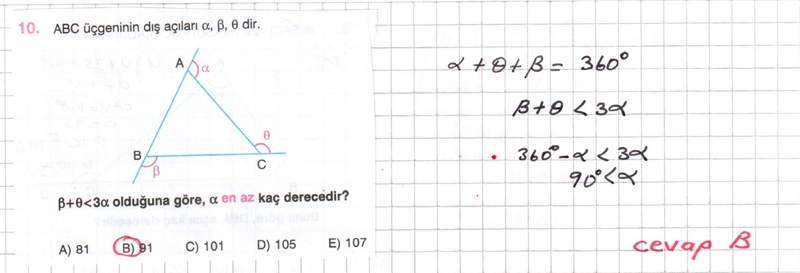 10. ABC üçgeninin dış açıları α, β, θ dir.
A
α
θ
B
β
C
β+θ<3α olduğuna göre, α en az kaç derecedir?
A) 81 B) 91 C) 101 D) 105 E) 107
α + θ + β = 360°
β + θ < 3α
360° - α < 3α
90° < α
cevap B